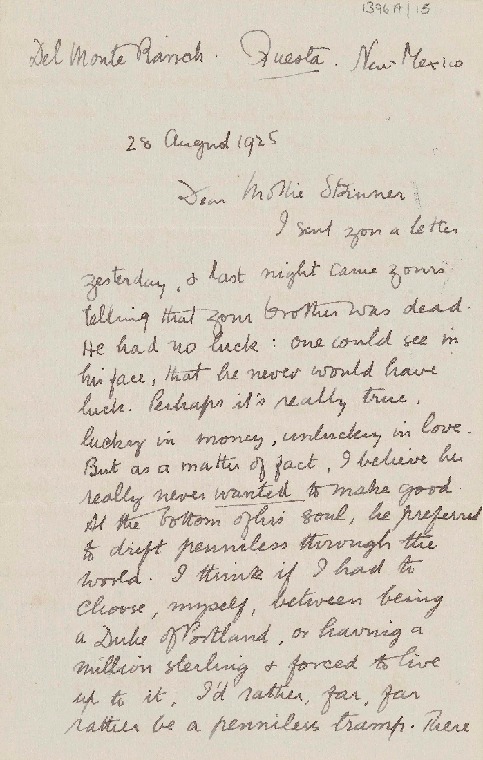 1396A/15
Del Monte Ranch. Questa. New Mexico
28 August 1925
Dear Mollie Skinner
I sent you a letter
yesterday, & last night came yours
telling that your brother was dead.
He had no luck: one could see in
his face, that he never would have
luck. Perhaps it's really true,
lucky in money, unlucky in love.
But as a matter of fact, I believe he
really never wanted to make good.
At the bottom of his soul, he preferred
to drift penniless through the
world. I think if I had to
choose, myself, between being
a Duke of Portland, or having a
million sterling & forced to live
up to it, I'd rather, far, far
rather be a penniless tramp. There